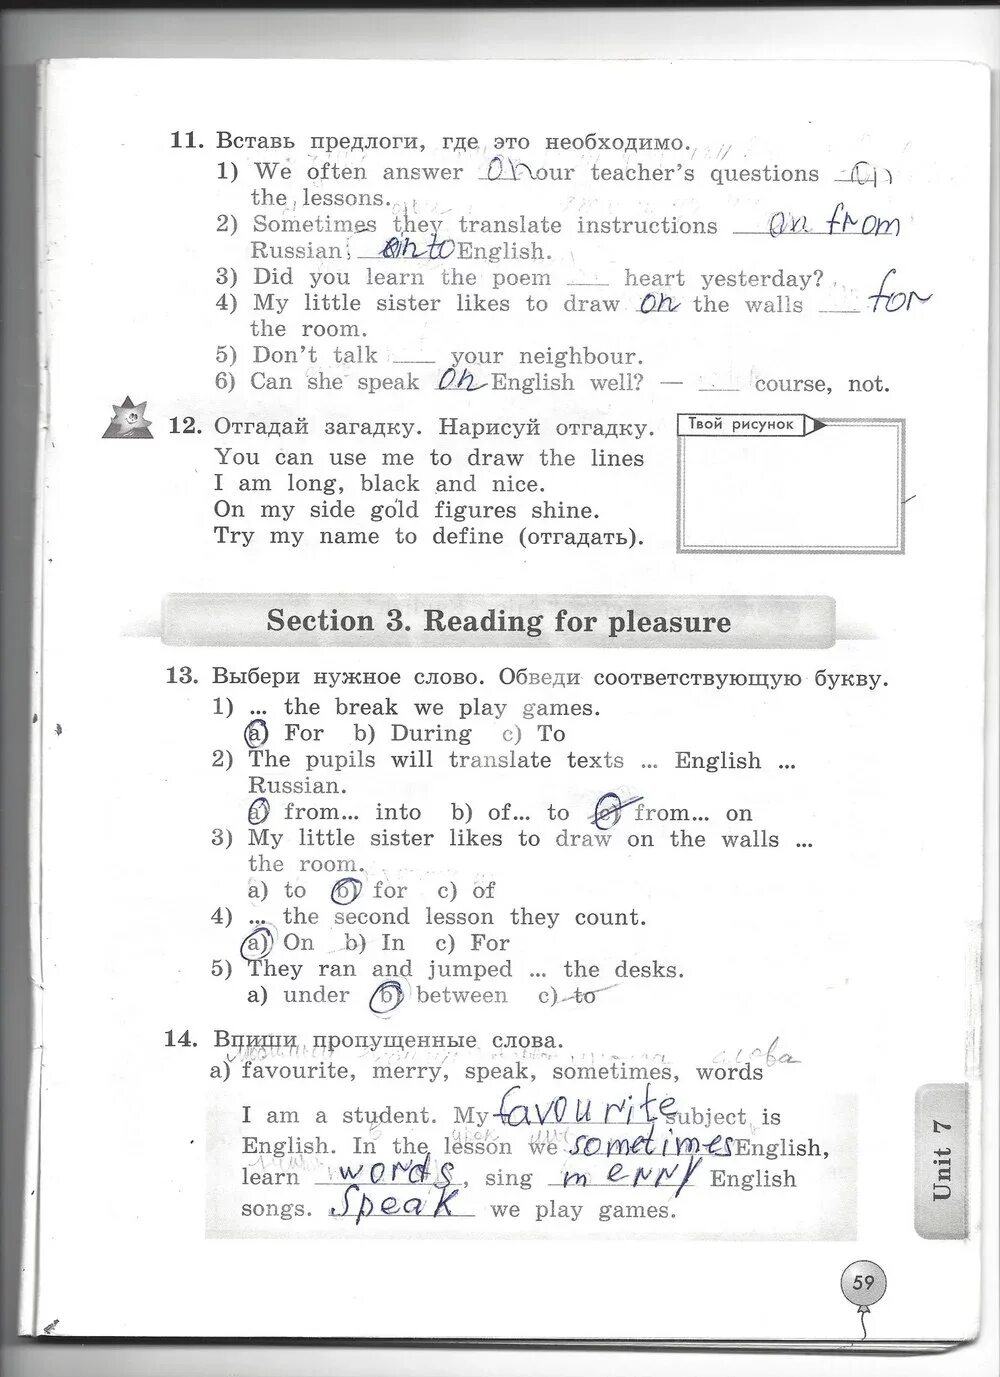 11. Вставь предлоги, где это необходимо.
1) We often answer on our teacher's questions on
the lessons.
2) Sometimes they translate instructions on from
Russian into English.
3) Did you learn the poem ___ heart yesterday?
4) My little sister likes to draw on the walls ___ for
the room.
5) Don't talk ___ your neighbour.
6) Can she speak on English well? — ___ course, not.
12. Отгадай загадку. Нарисуй отгадку.
Твой рисунок
You can use me to draw the lines
I am long, black and nice.
On my side gold figures shine.
Try my name to define (отгадать).
Section 3. Reading for pleasure
13. Выбери нужное слово. Обведи соответствующую букву.
1) ... the break we play games.
a) For b) During c) To
2) The pupils will translate texts ... English ...
Russian.
a) from... into b) of... to c) from... on
3) My little sister likes to draw on the walls ...
the room.
a) to b) for c) of
4) ... the second lesson they count.
a) On b) In c) For
5) They ran and jumped ... the desks.
a) under b) between c) to
14. Впиши пропущенные слова.
слова
a) favourite, merry, speak, sometimes, words
I am a student. My favourite subject is
English. In the lesson we sometimes English,
learn words, sing merry English
songs. Speak we play games.
Unit 7
59